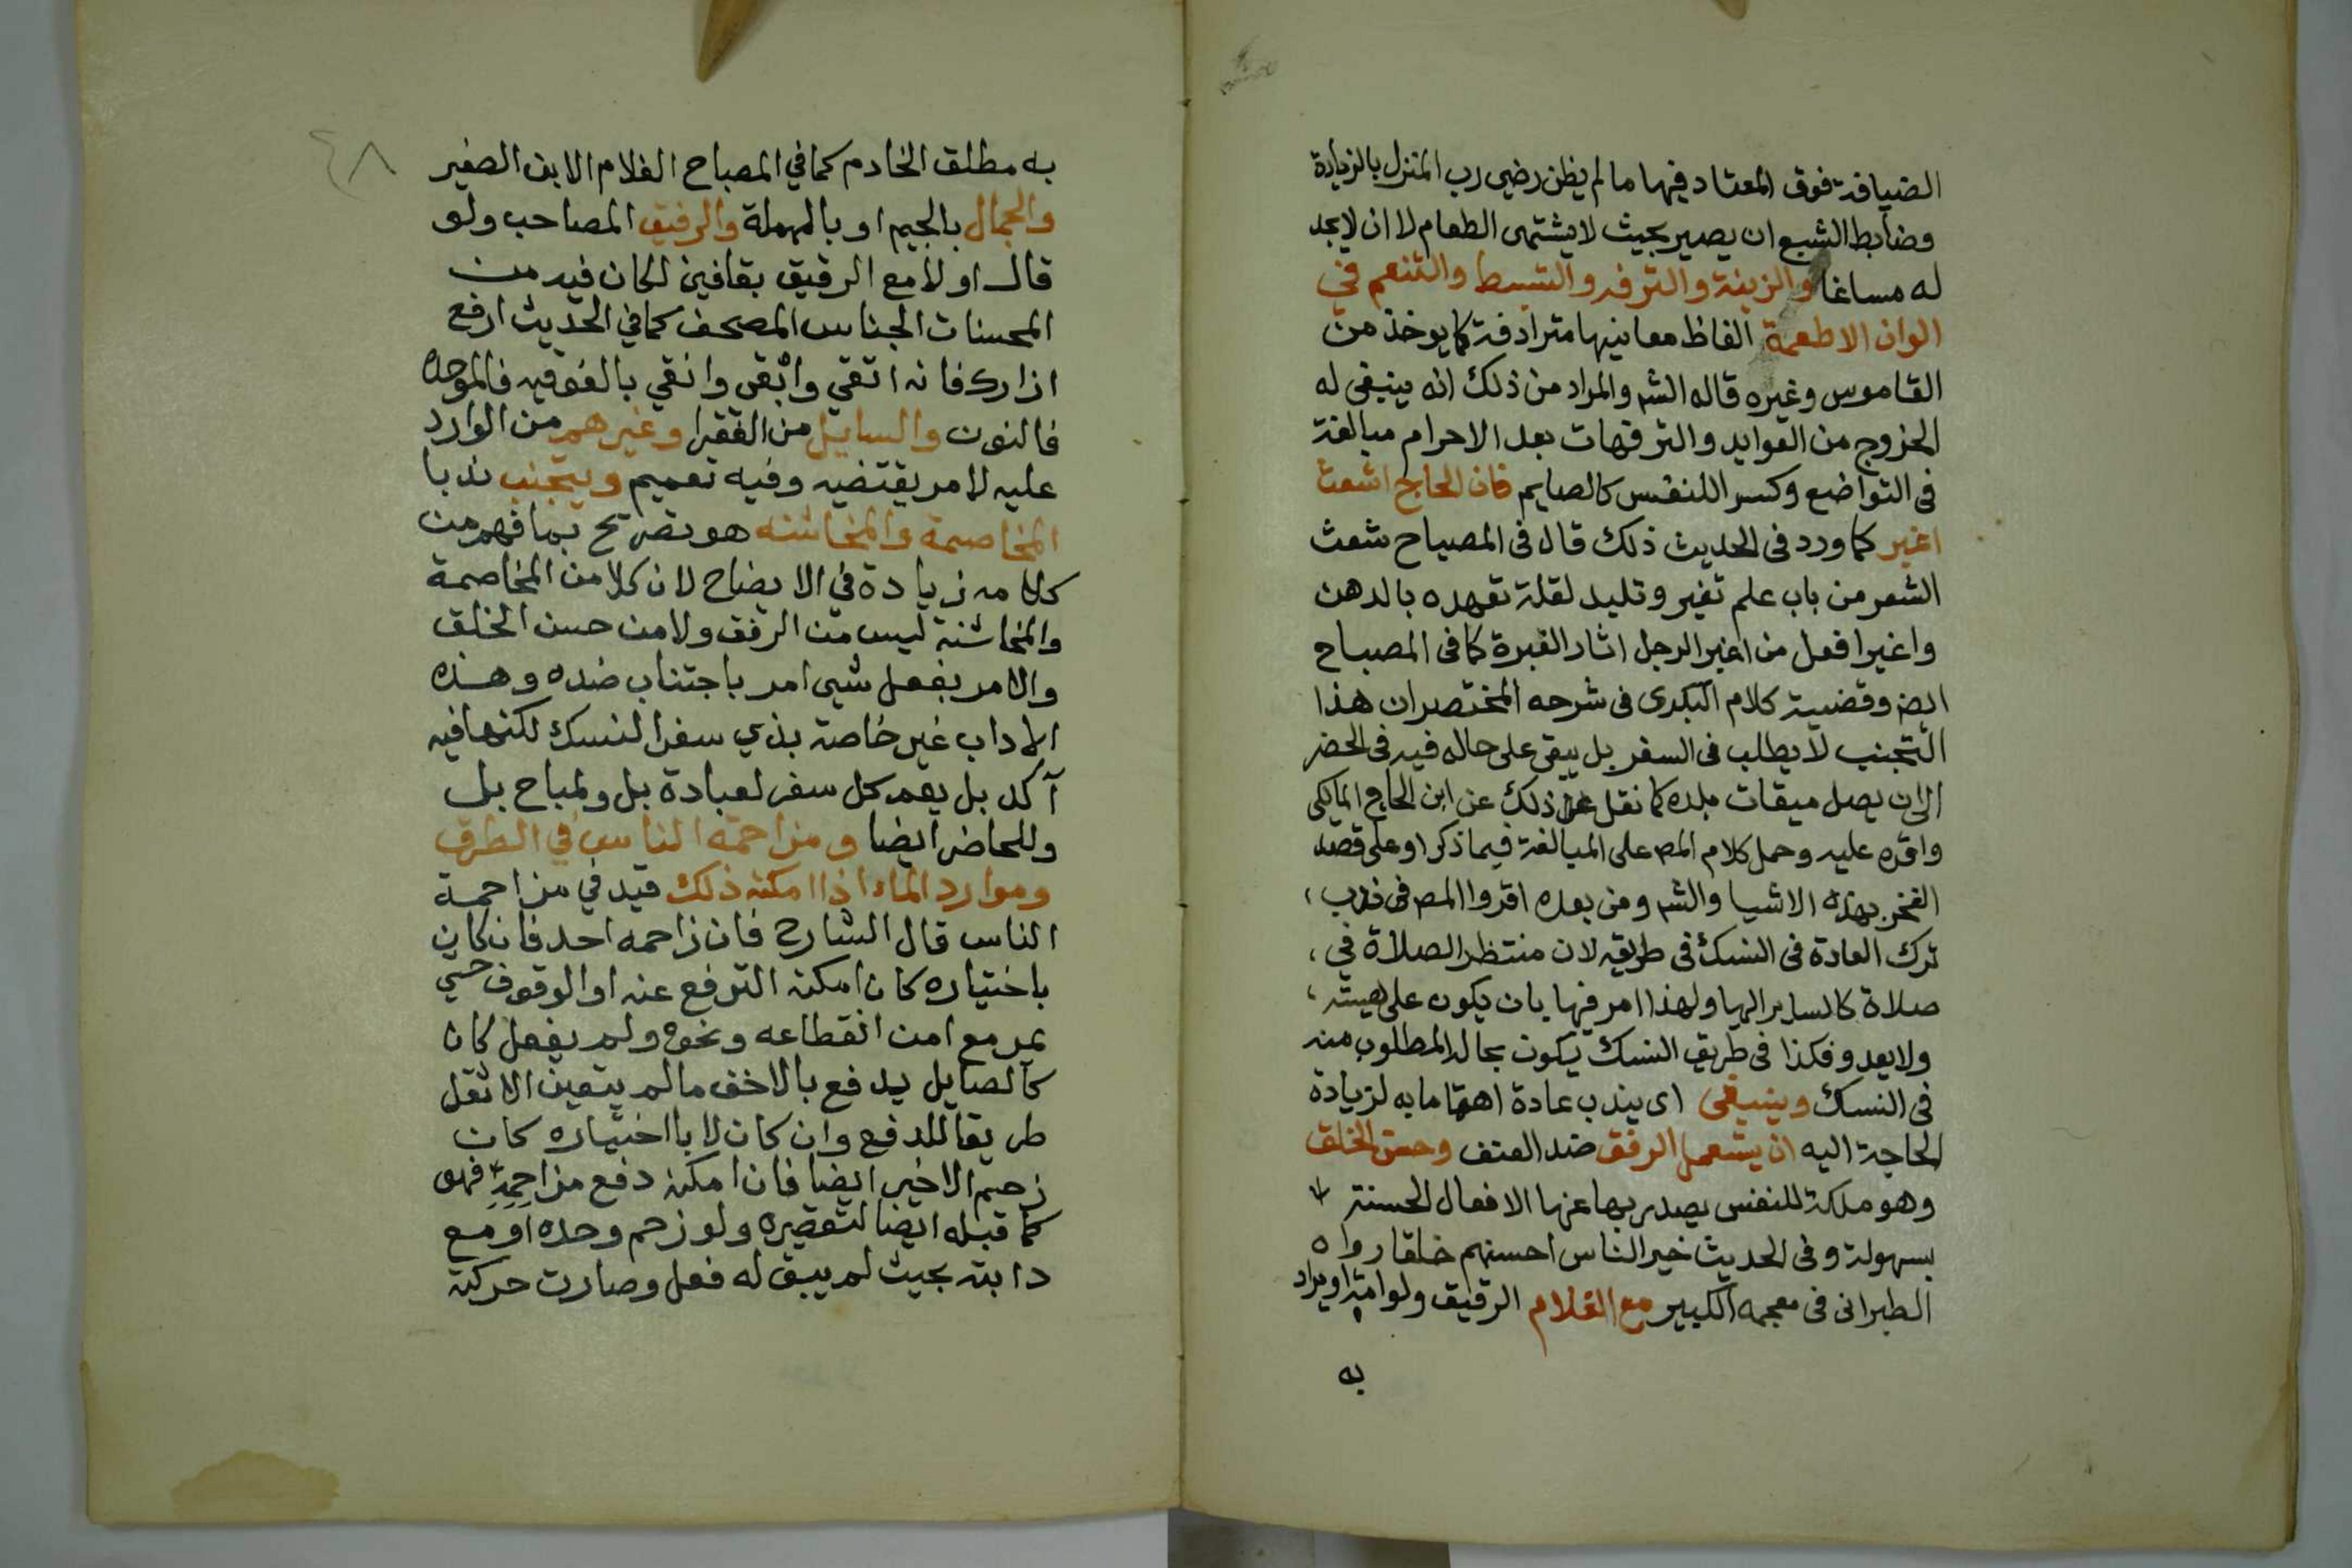 الضيافة فوق المعتاد فيها ما لم يظن رضى رب المنزل بالزيادة
وضابط الشبع ان يصير بحيث لا يشتهى الطعام لا ان لا يجد
له مساغا والزينة والترفه والتبسط والتنعم في
الوان الاطعمة الفاظ معانيها مترادفة كما يوخذ من
القاموس وغيره قاله الشم والمراد من ذلك انه ينبغى له
الخروج من العوايد والترفهات بعد الاحرام مبالغة
فى التواضع وكسرا للنفس كالصايم فان الحاج اشعث
اغبر كما ورد فى الحديث ذلك قال فى المصباح شعث
الشعر من باب علم تغير وتلبد لقلة تعهده بالدهن
واغبر افعل من اغبر الرجل اثار الغبرة كما فى المصباح
ايضا وقضية كلام البكرى فى شرحه المختصر ان هذا
التجنب لا يطلب فى السفر بل يبقى على حاله فيه فى الحضر
الى ان يصل ميقات بلده كما نقل ذلك عن ابن الحاج المالكى
واقره عليه وحمل كلام المص على المبالغة فيما ذكر او على قصد
الفخر بهذه الاشيا والشم ومن بعده اقروا المص فى ندب
ترك العادة فى النسك فى طريقه لان منتظر الصلاة في
صلاة كالساير اليها ولهذا امر فيها بان يكون على هينته
ولا يعدو فكذا فى طريق النسك يكون بحاله المطلوب منه
فى النسك وينبغى اى يندب عادة اهتماما به لزيادة
الحاجة اليه ان يستعمل الرفق ضد العنف وحسن الخلق
وهو ملكة للنفس يصدر بها عنها الافعال الحسنة
بسهولة وفى الحديث خير الناس احسنهم خلقا رواه
الطبرانى فى معجمه الكبير مع الغلام الرقيق ولو امة او يراد
به
٤٨
به مطلق الخادم كما في المصباح الغلام الابن الصغير
والجمال بالجيم او بالمهملة والرفيق المصاحب ولو
قال اولا مع الرقيق بقافين لكان فيه من
المحسنات الجناس المصحف كما في الحديث ارفع
ازارك فانه اتقي وابقى وانقي بالفوقيه فالموحده
فالنون والسايل من الفقرا وغيرهم من الوارد
عليه لامر يقتضيه وفيه تعميم ويتجنب ندبا
المخاصمة والمخاشنه هو تصريح بما فهم من
كلامه زيادة في الايضاح لان كلا من المخاصمة
والمخاشنة ليس من الرفق ولا من حسن الخلق
والامر بفعل شيى امر باجتناب ضده وهذه
الاداب غير خاصة بذي سفر النسك لكنها فيه
آكد بل يعم كل سفر لعبادة بل ولمباح بل
وللحاضر ايضا ومزاحمة الناس في الطرق
وموارد الماء اذا امكنه ذلك قيد في مزاحمة
الناس قال الشارح فان زاحمه احد فان كان
باختياره كان امكنه الترفع عنه او الوقوف حتي
يمر مع امن انقطاعه ونحوه ولم يفعل كان
كالصايل يدفع بالاخف ما لم يتعين الاثقل
طريقا للدفع وان كان لا بااختياره كان
زحم الاخير ايضا فان امكنه دفع مزاحمة فهو
كما قبله ايضا لتقصيره ولو زحم وحده او مع
دابته بحيث لم يبق له فعل وصارت حركته